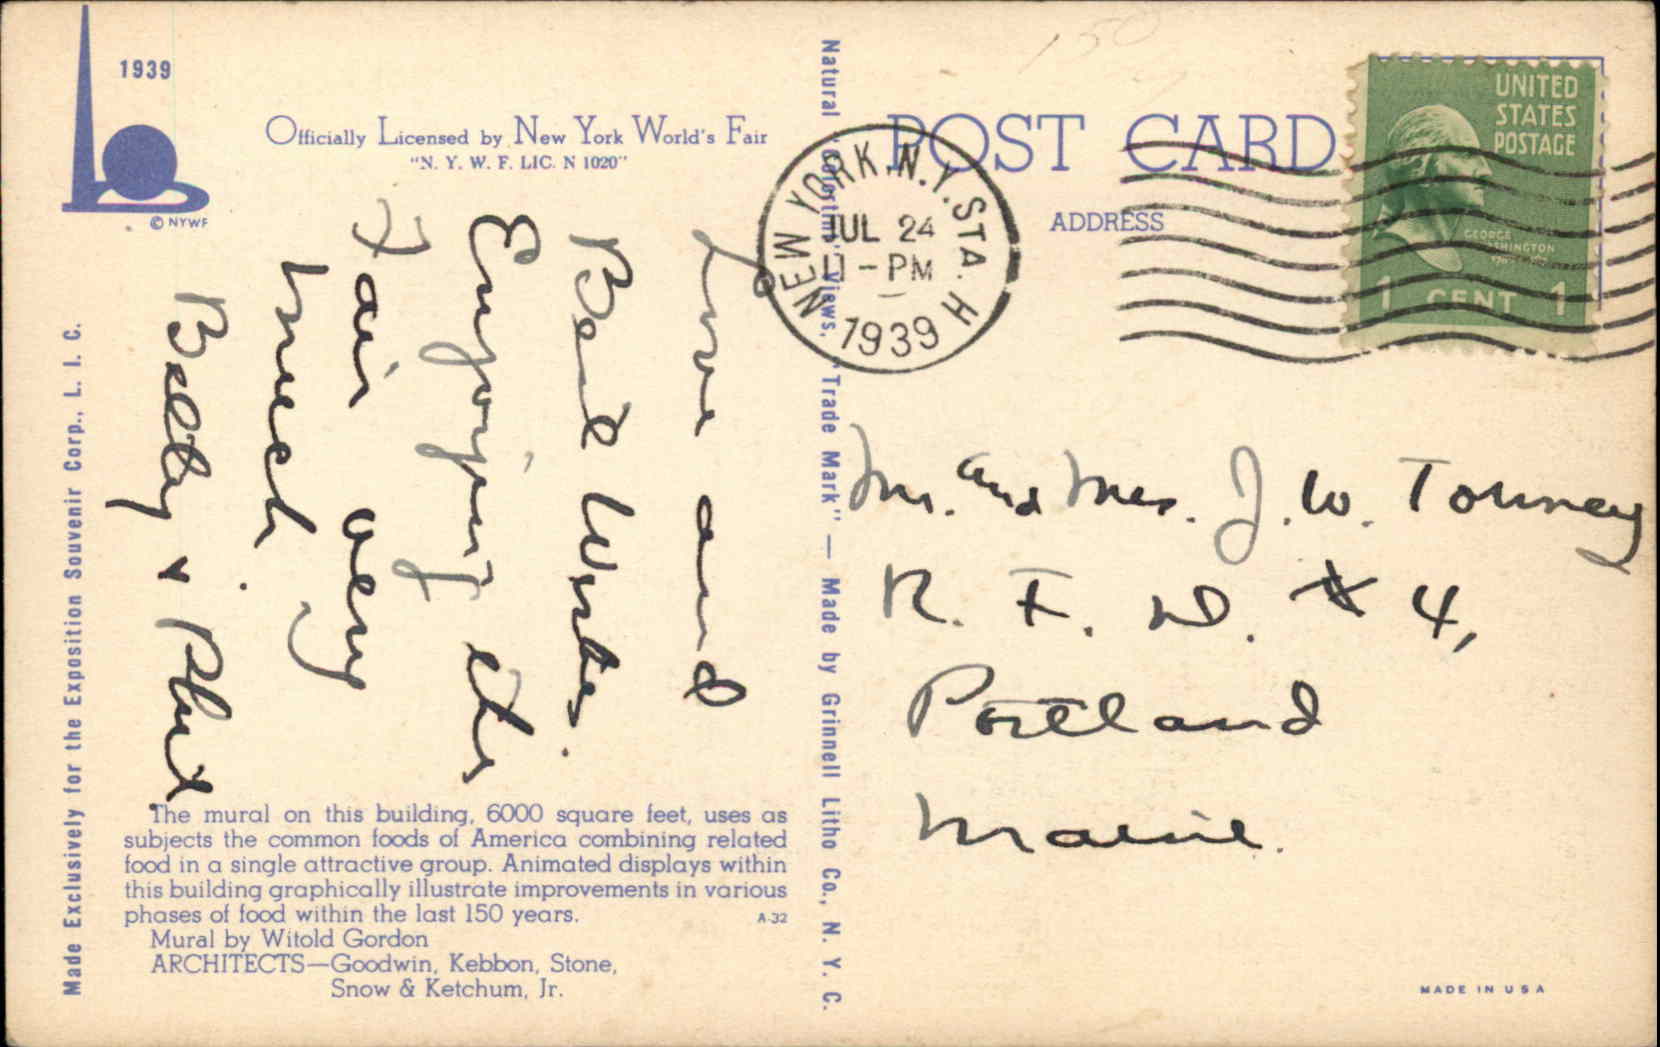 1939
© NYWF
Officially Licensed by New York World's Fair
"N. Y. W. F. LIC. N 1020"
POST CARD
ADDRESS
UNITED
STATES
POSTAGE
GEORGE
WASHINGTON
1 CENT 1
NEW YORK, N.Y. STA. H
JUL 24
11-PM
1939
150
Love and
Best Wishes.
Enjoying the
Fair very
much.
Betty + Phil
Mr. and Mrs. J. W. Tourney
R. F. D. # 4,
Portland
Maine.
The mural on this building, 6000 square feet, uses as
subjects the common foods of America combining related
food in a single attractive group. Animated displays within
this building graphically illustrate improvements in various
phases of food within the last 150 years.
A-32
Mural by Witold Gordon
ARCHITECTS—Goodwin, Kebbon, Stone,
Snow & Ketchum, Jr.
Made Exclusively for the Exposition Souvenir Corp., L. I. C.
Natural "Colortint Views, Trade Mark" — Made by Grinnell Litho Co., N. Y. C.
MADE IN USA